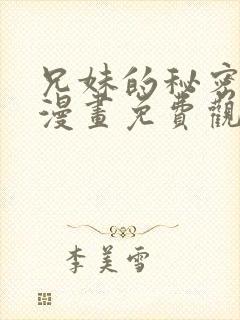 兄妹的秘密
漫畫免費觀
李美雪